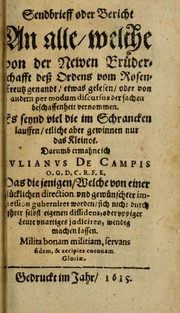 Sendbrieff oder Bericht
An alle/welche
von der Newen Brüder-
schafft deß Ordens vom Rosen-
kreutz genandt/ etwas gelesen/ oder von
andern per modum discursus der sachen
beschaffenheit vernommen.
Es seynd viel die im Schrancken
lauffen/ etliche aber gewinnen nur
das Kleinot.
Darumb ermahne ich
IVLIANVS DE CAMPIS
O. G. D. C. R. F. E.
Das die jenigen/ Welche von einer
glücklichen direction vnd gewünschter im-
pression guberniret worden/ sich nicht durch
ihrer selbst eigenen diffidens, oder vppiger
Leute vnartiges judiciren, wendig
machen lassen.
Milita bonam militiam, servans
fidem, & accipies coronam
Gloriæ.
Gedruckt im Jahr/ 1615.